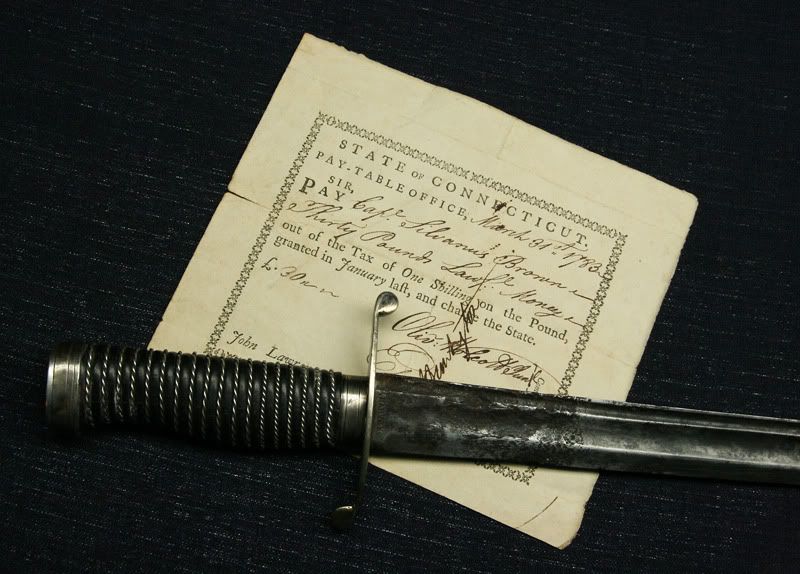 STATE OF CONNECTICUT,
PAY-TABLE OFFICE, March 31st 1783
SIR,
PAY Capt. Silvanus Brown
Thirty Pounds Lawfl. Money
out of the Tax of One Shilling on the Pound,
granted in January last, and charge the State.
£. 30
Olivr.
John Lawr